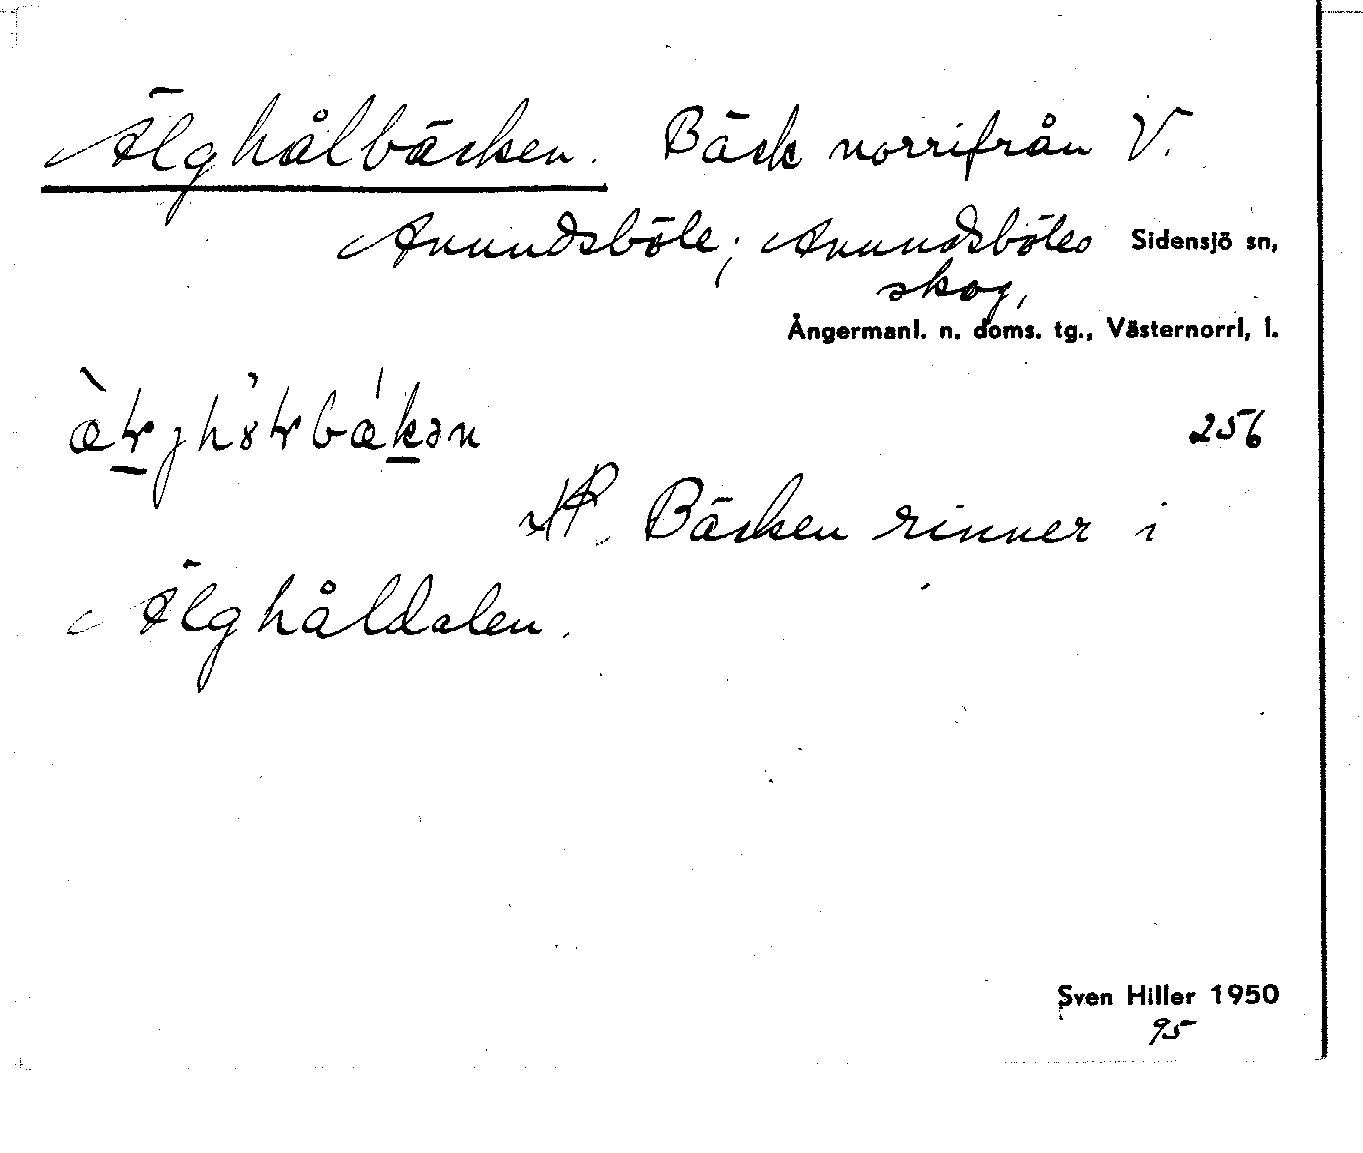 Älghålbäcken. Bäck norrifrån V.
Anundsböle; Anundsböles Sidensjö sn,
skog,
Ångermanl. n. doms. tg., Västernorrl. l.
256
Bäcken rinner i
Älghåldalen.
Sven Hiller 1950
95